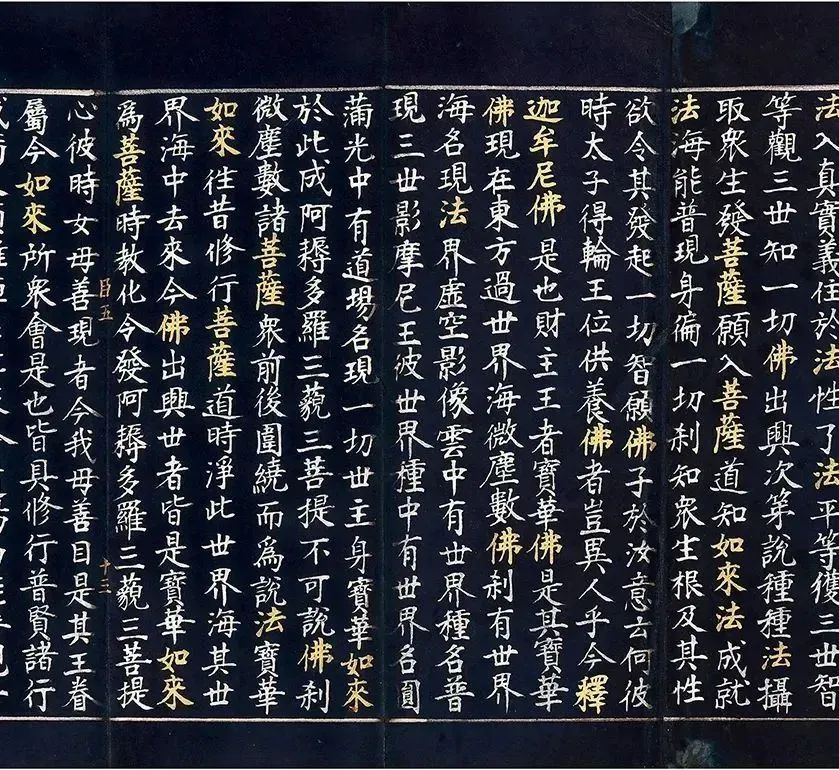 法入真實義住於法性了法平等獲三世智
等觀三世知一切佛出興次第說種種法攝
取衆生發菩薩願入菩薩道知如來法成就
法海能普現身徧一切刹知衆生根及其性
欲令其發起一切智願佛子於汝意云何彼
時太子得輪王位供養佛者豈異人乎今釋
迦牟尼佛是也財主王者寶華佛是其寶華
佛現在東方過世界海微塵數佛刹有世界
海名現法界虛空影像雲中有世界種名普
現三世影摩尼王彼世界種中有世界名圓
蒲光中有道場名現一切世主身寶華如來
於此成阿耨多羅三藐三菩提不可說佛刹
微塵數諸菩薩衆前後圍繞而爲說法寶華
如來往昔修行菩薩道時淨此世界海其世
界海中去來今佛出興世者皆是寶華如來
爲菩薩時教化令發阿耨多羅三藐三菩提
目五 十三
心彼時女母善現者今我母善目是其王眷
屬今如來所衆會是也皆具修行普賢諸行